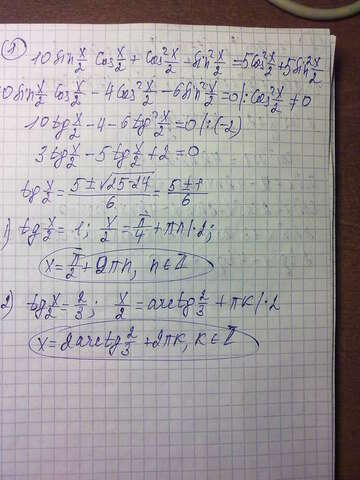 5) 10 sin x/2 cos x/2 + cos² x/2 - sin² x/2 = 5cos² x/2 + 5sin² x/2
10 sin x/2 cos x/2 - 4cos² x/2 - 6sin² x/2 = 0 /: cos² x/2 ≠ 0
10 tg x/2 - 4 - 6 tg² x/2 = 0 /: (-2)
3 tg² x/2 - 5 tg x/2 + 2 = 0
tg x/2 = (5 ± √(25-24))/6 = (5 ± 1)/6
1) tg x/2 = 1; x/2 = π/4 + πn /·2;
x = π/2 + 2πn, n ∈ Z
2) tg x/2 = 2/3; x/2 = arctg 2/3 + πk /·2
x = 2 arctg 2/3 + 2πk, k ∈ Z